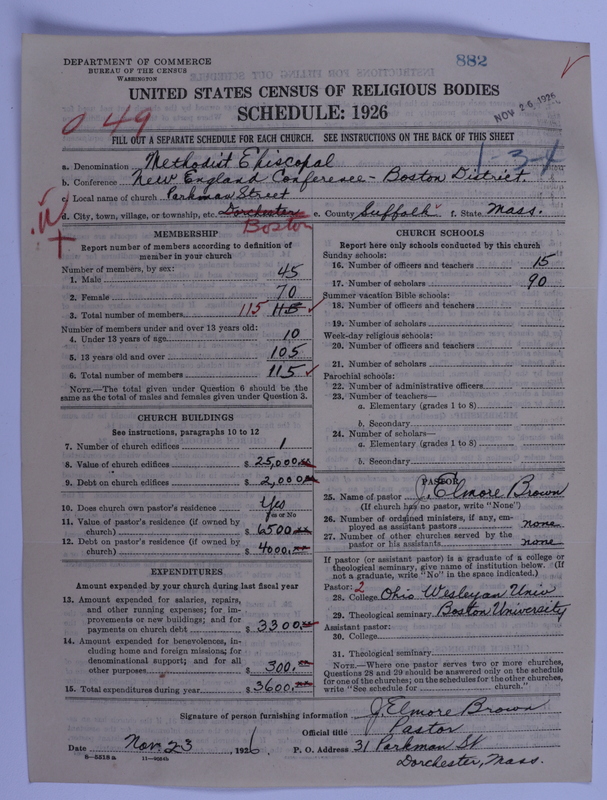 DEPARTMENT OF COMMERCE
BUREAU OF THE CENSUS
WASHINGTON
882
UNITED STATES CENSUS OF RELIGIOUS BODIES
SCHEDULE: 1926
NOV 26 1926
049
FILL OUT A SEPARATE SCHEDULE FOR EACH CHURCH. SEE INSTRUCTIONS ON THE BACK OF THIS SHEET
1-3-4
a. Denomination Methodist Episcopal
b. Conference New England Conference - Boston District.
c. Local name of church Parkman Street
d. City, town, village, or township, etc. Dorchester e. County Suffolk f. State Mass.
Boston
MEMBERSHIP
Report number of members according to definition of member in your church
Number of members, by sex:
1. Male 45
2. Female 70
3. Total number of members 115 115
Number of members under and over 13 years old:
4. Under 13 years of age 10
5. 13 years old and over 105
6. Total number of members 115
NOTE.—The total given under Question 6 should be the same as the total of males and females given under Question 3.
CHURCH BUILDINGS
See instructions, paragraphs 10 to 12
7. Number of church edifices 1
8. Value of church edifices $ 25,000.00
9. Debt on church edifices $ 2,000.00
10. Does church own pastor's residence? Yes
Yes or No
11. Value of pastor's residence (if owned by church) $ 6500.00
12. Debt on pastor's residence (if owned by church) $ 4000.00
EXPENDITURES
Amount expended by your church during last fiscal year
13. Amount expended for salaries, repairs, and other running expenses; for improvements or new buildings; and for payments on church debt $ 3300.00
14. Amount expended for benevolences, including home and foreign missions; for denominational support; and for all other purposes $ 300.00
15. Total expenditures during year $ 3600.00
CHURCH SCHOOLS
Report here only schools conducted by this church
Sunday schools:
16. Number of officers and teachers 15
17. Number of scholars 90
Summer vacation Bible schools:
18. Number of officers and teachers
19. Number of scholars
Week-day religious schools:
20. Number of officers and teachers
21. Number of scholars
Parochial schools:
22. Number of administrative officers
23. Number of teachers—
a. Elementary (grades 1 to 8)
b. Secondary
24. Number of scholars—
a. Elementary (grades 1 to 8)
b. Secondary
PASTOR
25. Name of pastor J. Elmore Brown
(If church has no pastor, write "None")
26. Number of ordained ministers, if any, employed as assistant pastors none
27. Number of other churches served by the pastor or his assistants none
If pastor (or assistant pastor) is a graduate of a college or theological seminary, give name of institution below. (If not a graduate, write "No" in the space indicated.)
Pastor: 2
28. College Ohio Wesleyan Univ
29. Theological seminary Boston University
Assistant pastor:
30. College
31. Theological seminary
NOTE.—Where one pastor serves two or more churches, Questions 28 and 29 should be answered only on the schedule for one of the churches; on the schedules for the other churches, write "See schedule for church."
Signature of person furnishing information J. Elmore Brown
Official title Pastor
Date Nov. 23, 1926. P. O. Address 31 Parkman St
Dorchester, Mass.